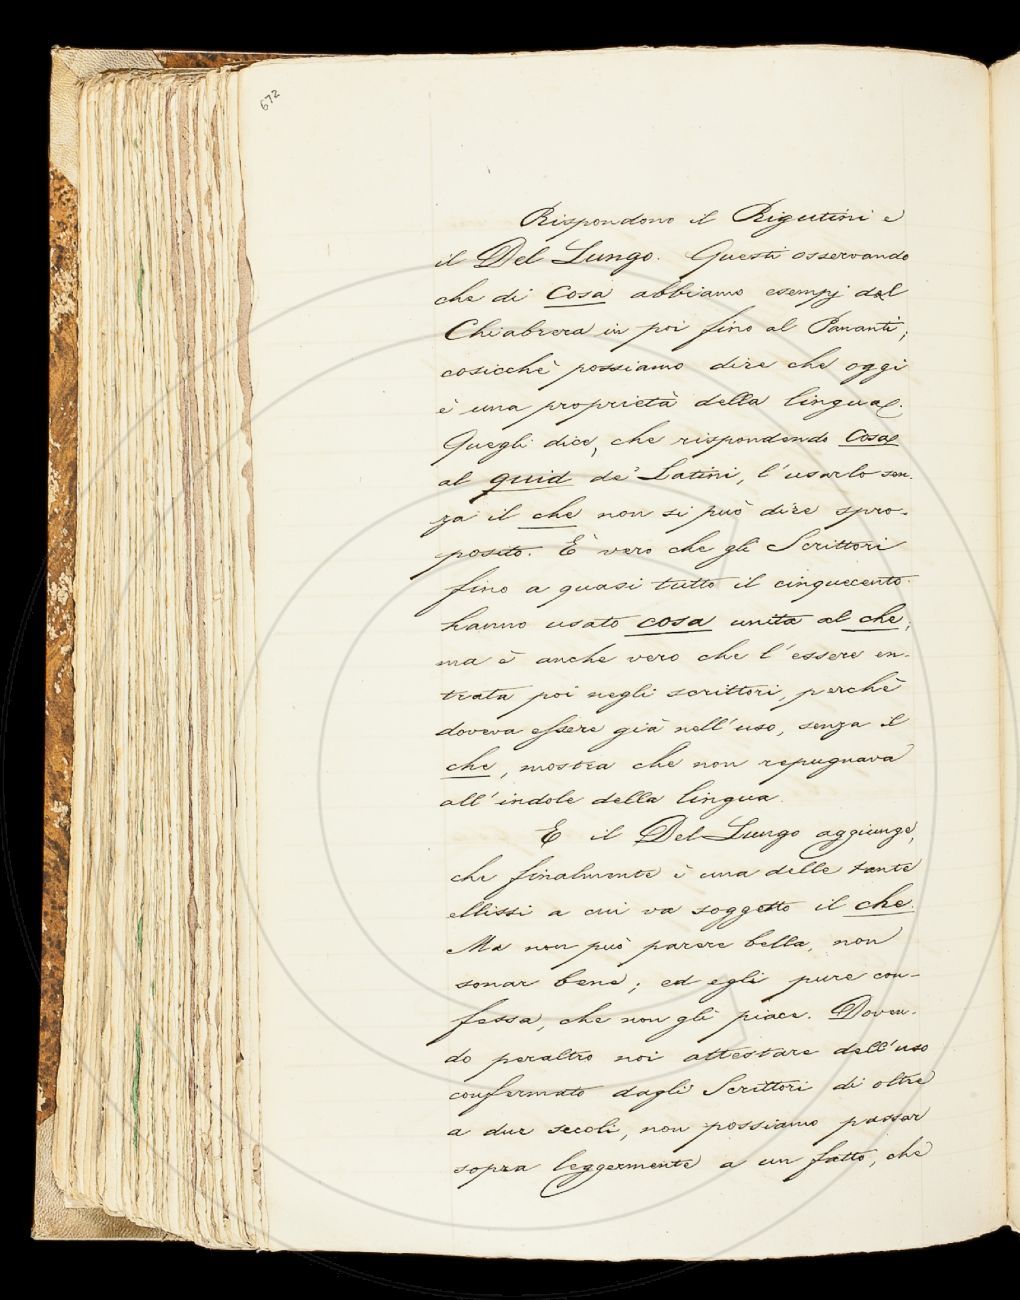 672
Rispondono il Rigutini e
il Del Lungo. Questi osservando
che di Cosa abbiamo esempj dal
Chiabrera in poi fino al Pananti;
cosicchè possiamo dire che oggi
è una proprietà della lingua.
Quegli dice, che rispondendo Cosa
al quid de' Latini, l'usarlo sen-
za il che non si può dire spro-
posito. È vero che gli Scrittori
fino a quasi tutto il cinquecento
hanno usato cosa unita al che;
ma è anche vero che l'essere en-
trata poi negli scrittori, perchè
doveva essere già nell'uso, senza il
che, mostra che non repugnava
all'indole della lingua.
E il Del Lungo aggiunge,
che finalmente è una delle tante
ellissi a cui va soggetto il che.
Ma non può parere bella, non
sonar bene; ed egli pure con-
fessa, che non gli piace. Doven-
do peraltro noi attestare dell'uso
confermato dagli Scrittori di oltre
a due secoli, non possiamo passar
sopra leggermente a un fatto, che